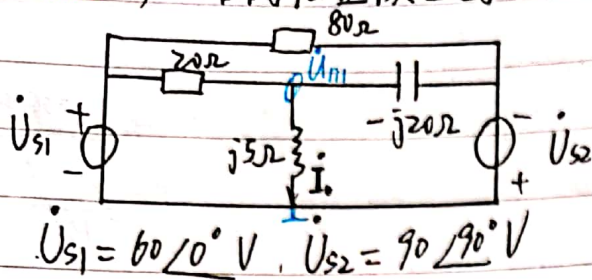 80Ω
20Ω
U̇n1
-j20Ω
+
-
U̇s1
j5Ω
İ.
-
+
U̇s2
U̇s1 = 60∠0° V , U̇s2 = 90∠90° V